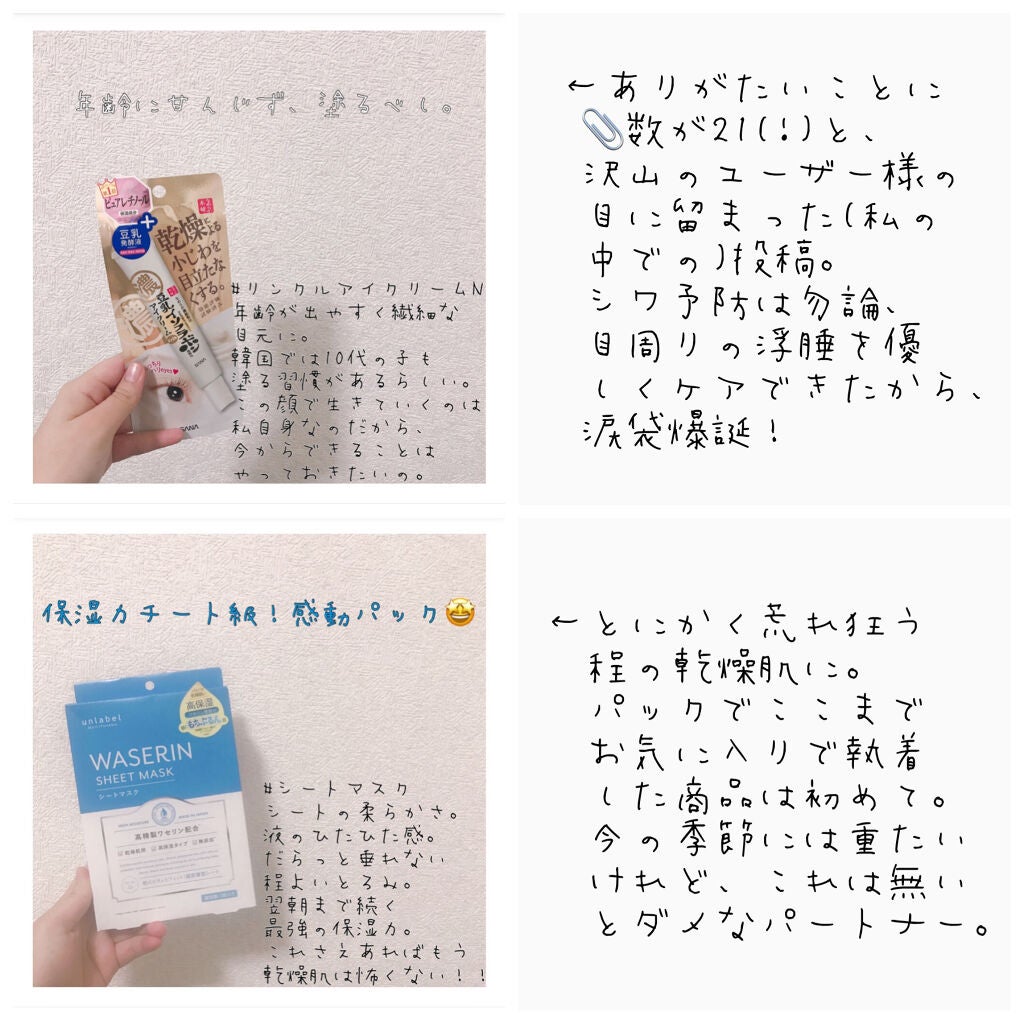 年齢に甘んじず、塗るべし。
ピュアレチノール
豆乳
発酵液
+
乾燥による
小じわを
目立たな
くする。
濃
豆乳イソフラボン
アイクリーム
SANA
#リンクルアイクリームN
年齢が出やすく繊細な
目元に。
韓国では10代の子も
塗る習慣があるらしい。
この顔で生きていくのは
私自身なのだから、
今からできることは
やっておきたいの。
←ありがたいことに
📎数が21(!)と、
沢山のユーザー様の
目に留まった(私の
中での)投稿。
シワ予防は勿論、
目周りの浮腫を優
しくケアできたから、
涙袋爆誕!
保湿力チート級!感動パック🤩
unlabel
高保湿
もちぷるん
WASERIN
SHEET MASK
シートマスク
高精製ワセリン配合
#シートマスク
シートの柔らかさ。
液のひたひた感。
だらっと垂れない
程よいとろみ。
翌朝まで続く
最強の保湿力。
これさえあればもう
乾燥肌は怖くない!!
←とにかく荒れ狂う
程の乾燥肌に。
パックでここまで
お気に入りで執着
した商品は初めて。
今の季節には重たい
けれど、これは無い
とダメなパートナー。